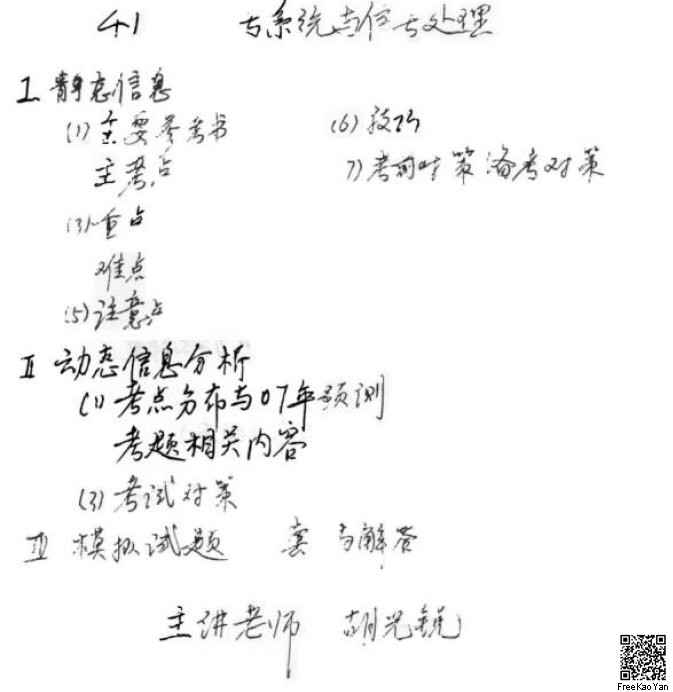 441 号系统与信号处理
I 静态信息
(1) 主要参考书 (6) 技巧
主考点 7) 考前对策 备考对策
(3) 重点
难点
(5) 注意点
II 动态信息分析
(1) 考点分布与07年预测
考题相关内容
(3) 考试对策
III 模拟试题 套 与解答
主讲老师 胡光锐
FreeKaoYan